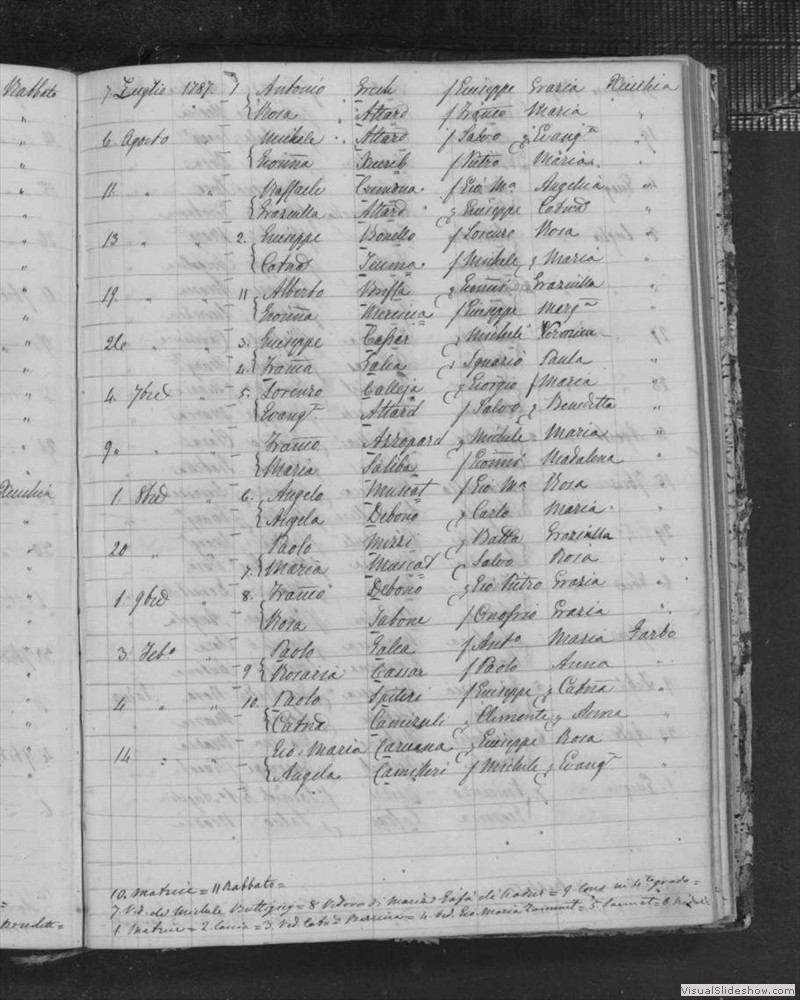 Rabbato
7 Luglio 1787 1 Antonio Grech f Giuseppe Grazia Xeuchia
Rosa Attard f Franco Maria "
6 Agosto Michele Attard f Salvo Evang.ta "
Gioanna Xuereb f Pietro Maria "
11 " Raffaele Cremona f Gio Ma Angelica "
Graziulla Attard Giuseppe Catna "
13 " 2. Giuseppe Bonello f Lorenzo Rosa "
Catna Teuma f Michele Maria "
19 " " 11 Alberto Graziulla "
Gioanna Mercieca f Giuseppe Marg.ta "
26 " " 3. Giuseppe Michele Veronica "
4. Franca Galea Ignazio Paula "
4. 7bre 5. Lorenzo Calleja Giorgio f Maria "
Evang.ta Attard f Salvo Benedetta "
9 " Franco Azzopard Michele Maria "
Maria Saliba f Madalena "
Xeuchia
1. 8bre 6. Angelo Muscat f Gio Ma Rosa "
Angela Debono Carlo Maria "
20 " Paolo Mizzi Batta Graziulla "
7. Maria Muscat Salvo Rosa "
1 9bre 8. Franco Debono Gio Pietro Grazia "
Rosa Tabone f Onofrio Grazia "
3 Feb.o Paolo Galea f Anto Maria Garbo
9 Rosaria Cassar f Paolo Anna "
4 " " 10. Paolo Spiteri f Giuseppe Catna "
Catna Camenzuli Clemente Anna "
14 " Gio Maria Caruana Giuseppe Rosa "
Angela Camilleri f Michele Evang.ta "
10. Matrice = 11 Rabbato =
7. Ved. di Michele Buttigieg = 8 Vedova di = 9. Cons. in 4to grado =
1. Matrice = 2. = 3. Ved. = 4. Ved. Gio Maria = 5. =
VisualSlideshow.com